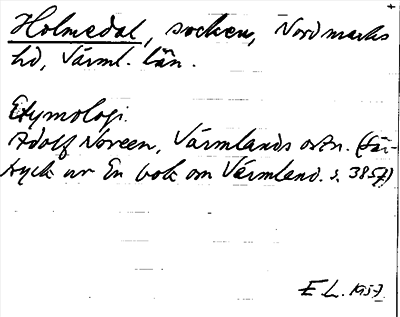 Holmedal, socken, Nordmarks
hd, Värml. län.
Etymologi.
Adolf Noreen, Värmlands ortn. (Sär-
tryck ur En bok om Värmland. s. 385f)
E L. 1957.